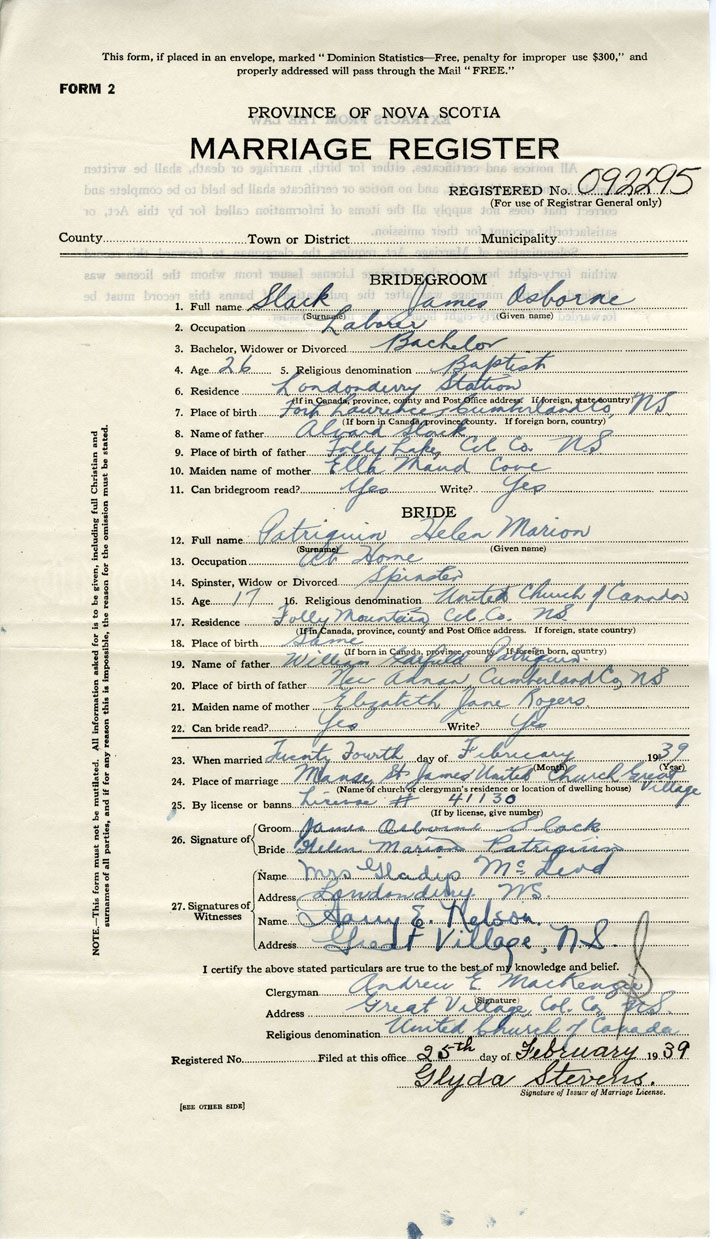 This form, if placed in an envelope, marked "Dominion Statistics—Free, penalty for improper use $300," and
properly addressed will pass through the Mail "FREE."
FORM 2
PROVINCE OF NOVA SCOTIA
MARRIAGE REGISTER
REGISTERED No. 092295
(For use of Registrar General only)
County Town or District Municipality
BRIDEGROOM
1. Full name Slack James Osborne
(Surname) (Given name)
2. Occupation Laborer
3. Bachelor, Widower or Divorced Bachelor
4. Age 26 5. Religious denomination Baptist
6. Residence Londonderry Station
(If in Canada, province, county and Post Office address. If foreign, state country)
7. Place of birth Fort Lawrence, Cumberland Co, N.S.
(If born in Canada, province, county. If foreign born, country)
8. Name of father Alvard Slack
9. Place of birth of father Folly Lake, Col. Co. NS
10. Maiden name of mother Ella Maud Cove
11. Can bridegroom read? Yes Write? Yes
BRIDE
12. Full name Patriquin Helen Marion
(Surname) (Given name)
13. Occupation At Home
14. Spinster, Widow or Divorced Spinster
15. Age 17 16. Religious denomination United Church of Canada
17. Residence Folly Mountain, Col. Co. N.S.
(If in Canada, province, county and Post Office address. If foreign, state country)
18. Place of birth Same
(If born in Canada, province, county. If foreign born, country)
19. Name of father William Patriquin
20. Place of birth of father New Annan, Cumberland Co, NS
21. Maiden name of mother Elizabeth Jane Rogers
22. Can bride read? Yes Write? Yes
23. When married Twenty Fourth day of February 1939
(Month) (Year)
24. Place of marriage Manse, St James United Church Great Village
(Name of church or clergyman's residence or location of dwelling house)
25. By license or banns License # 41130
(If by license, give number)
26. Signature of Groom James Osborne Slack
Bride Helen Marion Patriquin
27. Signatures of Witnesses Name Mrs Gladys McLeod
Address Londonderry NS.
Name Harry E. Nelson.
Address Great Village, N.S.
I certify the above stated particulars are true to the best of my knowledge and belief.
Clergyman Andrew E. MacKenzie
(Signature)
Address Great Village, Col. Co. N.S.
Religious denomination United Church of Canada
Registered No. Filed at this office 25th day of February 1939
Glyda Stevens.
Signature of Issuer of Marriage License.
[SEE OTHER SIDE]
NOTE.—This form must not be mutilated. All information asked for is to be given, including full Christian and
surnames of all parties, and if for any reason this is impossible, the reason for the omission must be stated.